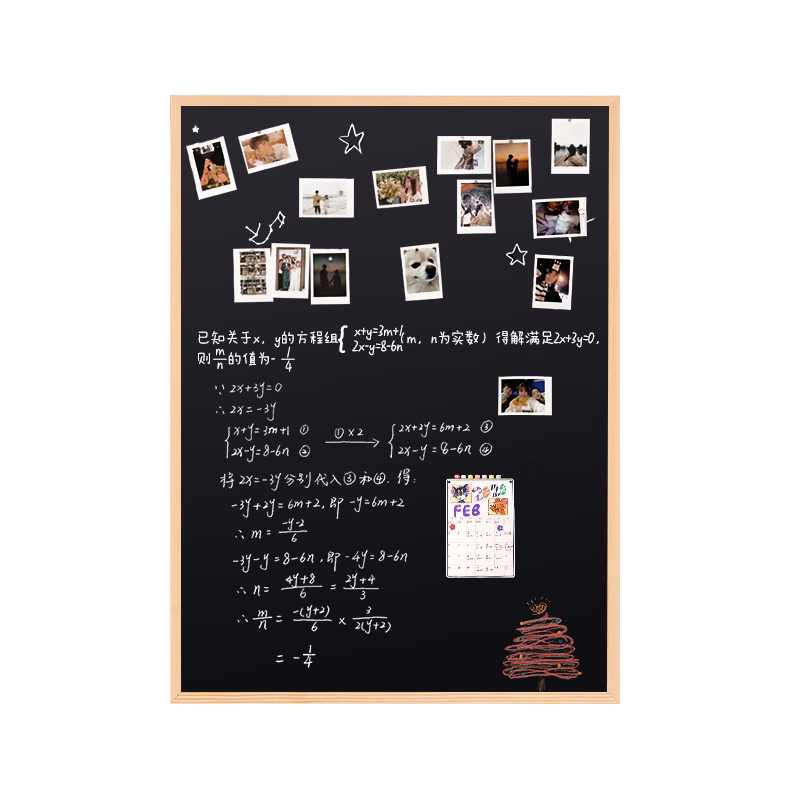 已知关于x，y的方程组{x+y=3m+1, 2x-y=8-6n (m，n为实数) 得解满足2x+3y=0，
则m/n的值为-1/4
∵ 2x+3y=0
∴ 2x=-3y
{x+y=3m+1 ① ①×2→ {2x+2y=6m+2 ③
2x-y=8-6n ② 2x-y=8-6n ④
将2x=-3y分别代入③和④.得：
-3y+2y=6m+2,即-y=6m+2
∴ m=(-y-2)/6
-3y-y=8-6n,即-4y=8-6n
∴ n=(4y+8)/6=(2y+4)/3
∴ m/n=-(y+2)/6×3/2(y+2)
=-1/4
FEB